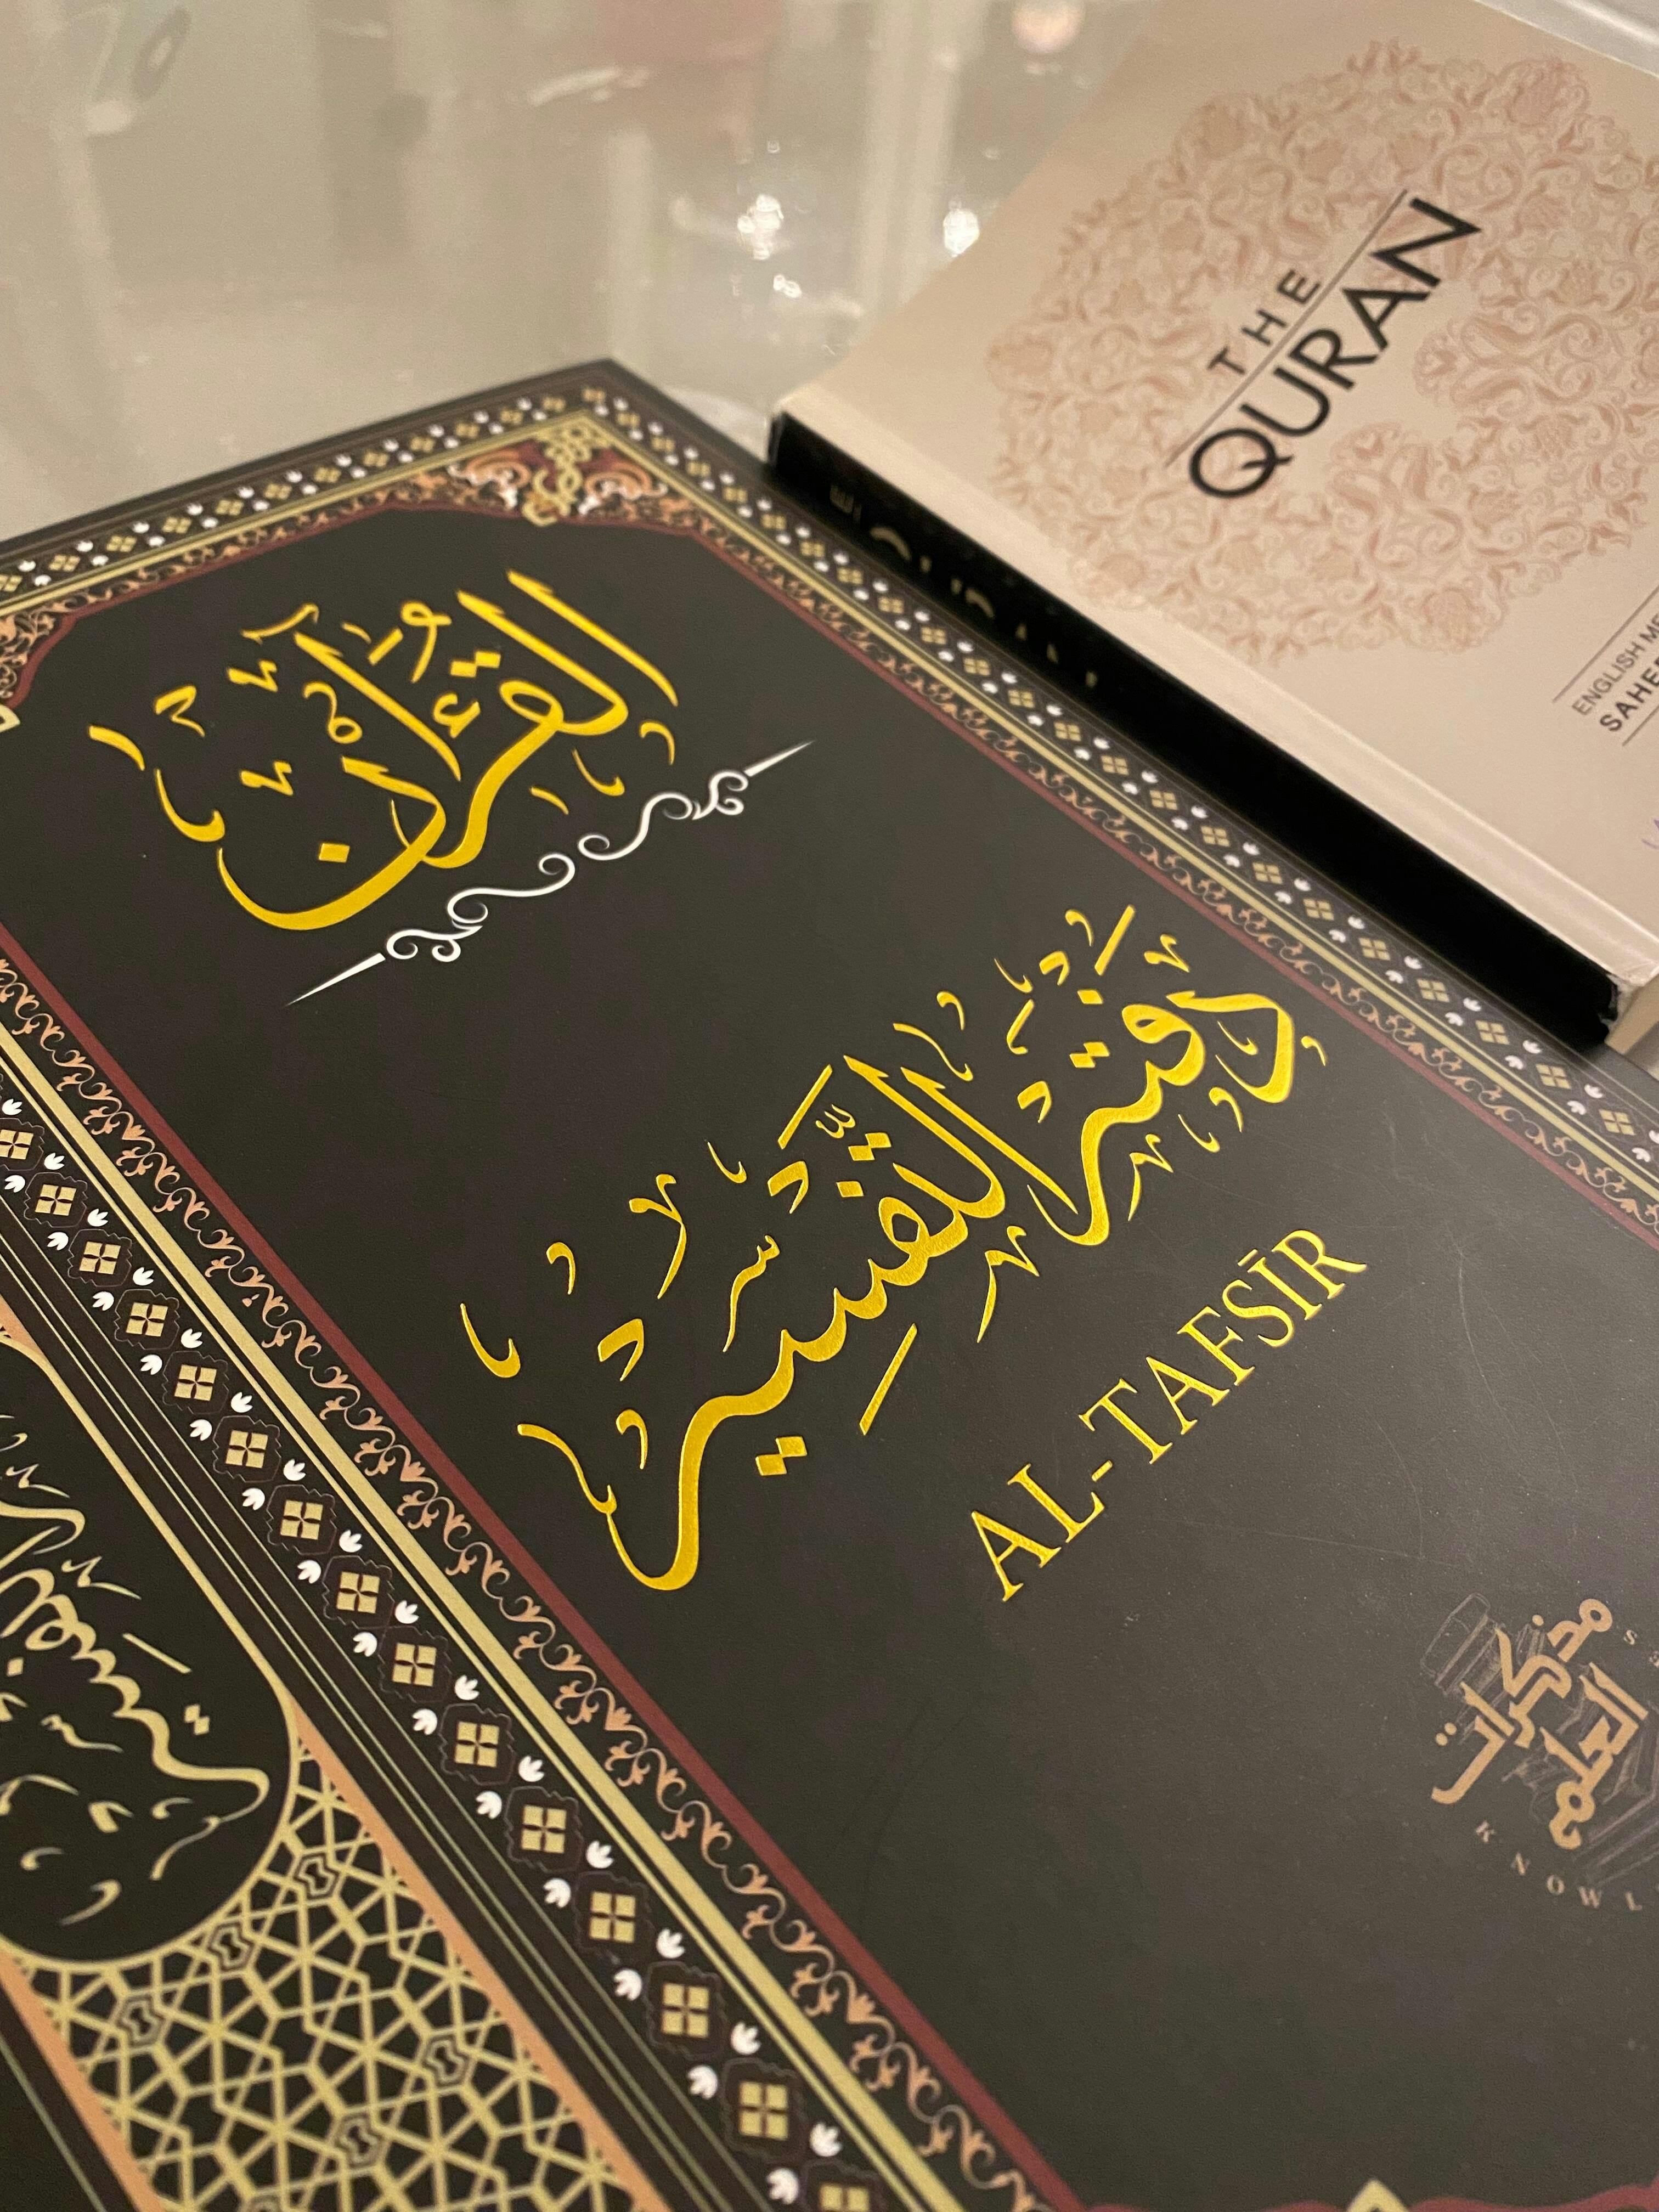 THE
QURAN
ENGLISH
القرآن
دفتر التفسير
AL-TAFSĪR
مذكرات
العلم